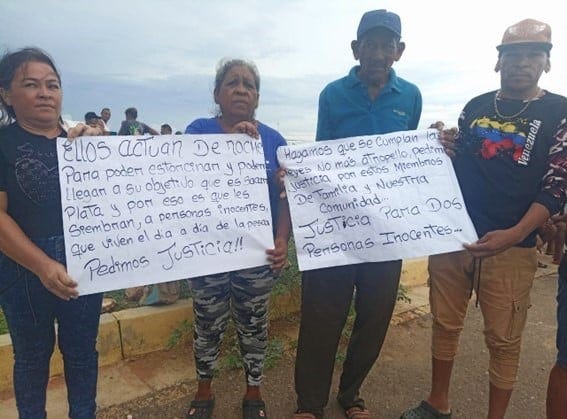 ELLOS ACTUAN DE NOCHE
PARA PODER ESTORCINAR Y PODER
LLEGAR A SU OBJETIVO QUE ES SACAR
PLATA Y POR ESO ES QUE LES
SIEMBRAN, A PERSONAS INOCENTES.
QUE VIVEN EL DIA A DÍA DE LA PESCA
PEDIMOS JUSTICIA!!
HAGAMOS QUE SE CUMPLAN LA
LEYES NO MÁS ATROPELLO, PEDIMOS
JUSTICIA POR ESTOS MIEMBROS
DE FAMILIA Y NUESTRA
COMUNIDAD...
JUSTICIA PARA DOS
PERSONAS INOCENTES...
Venezuela